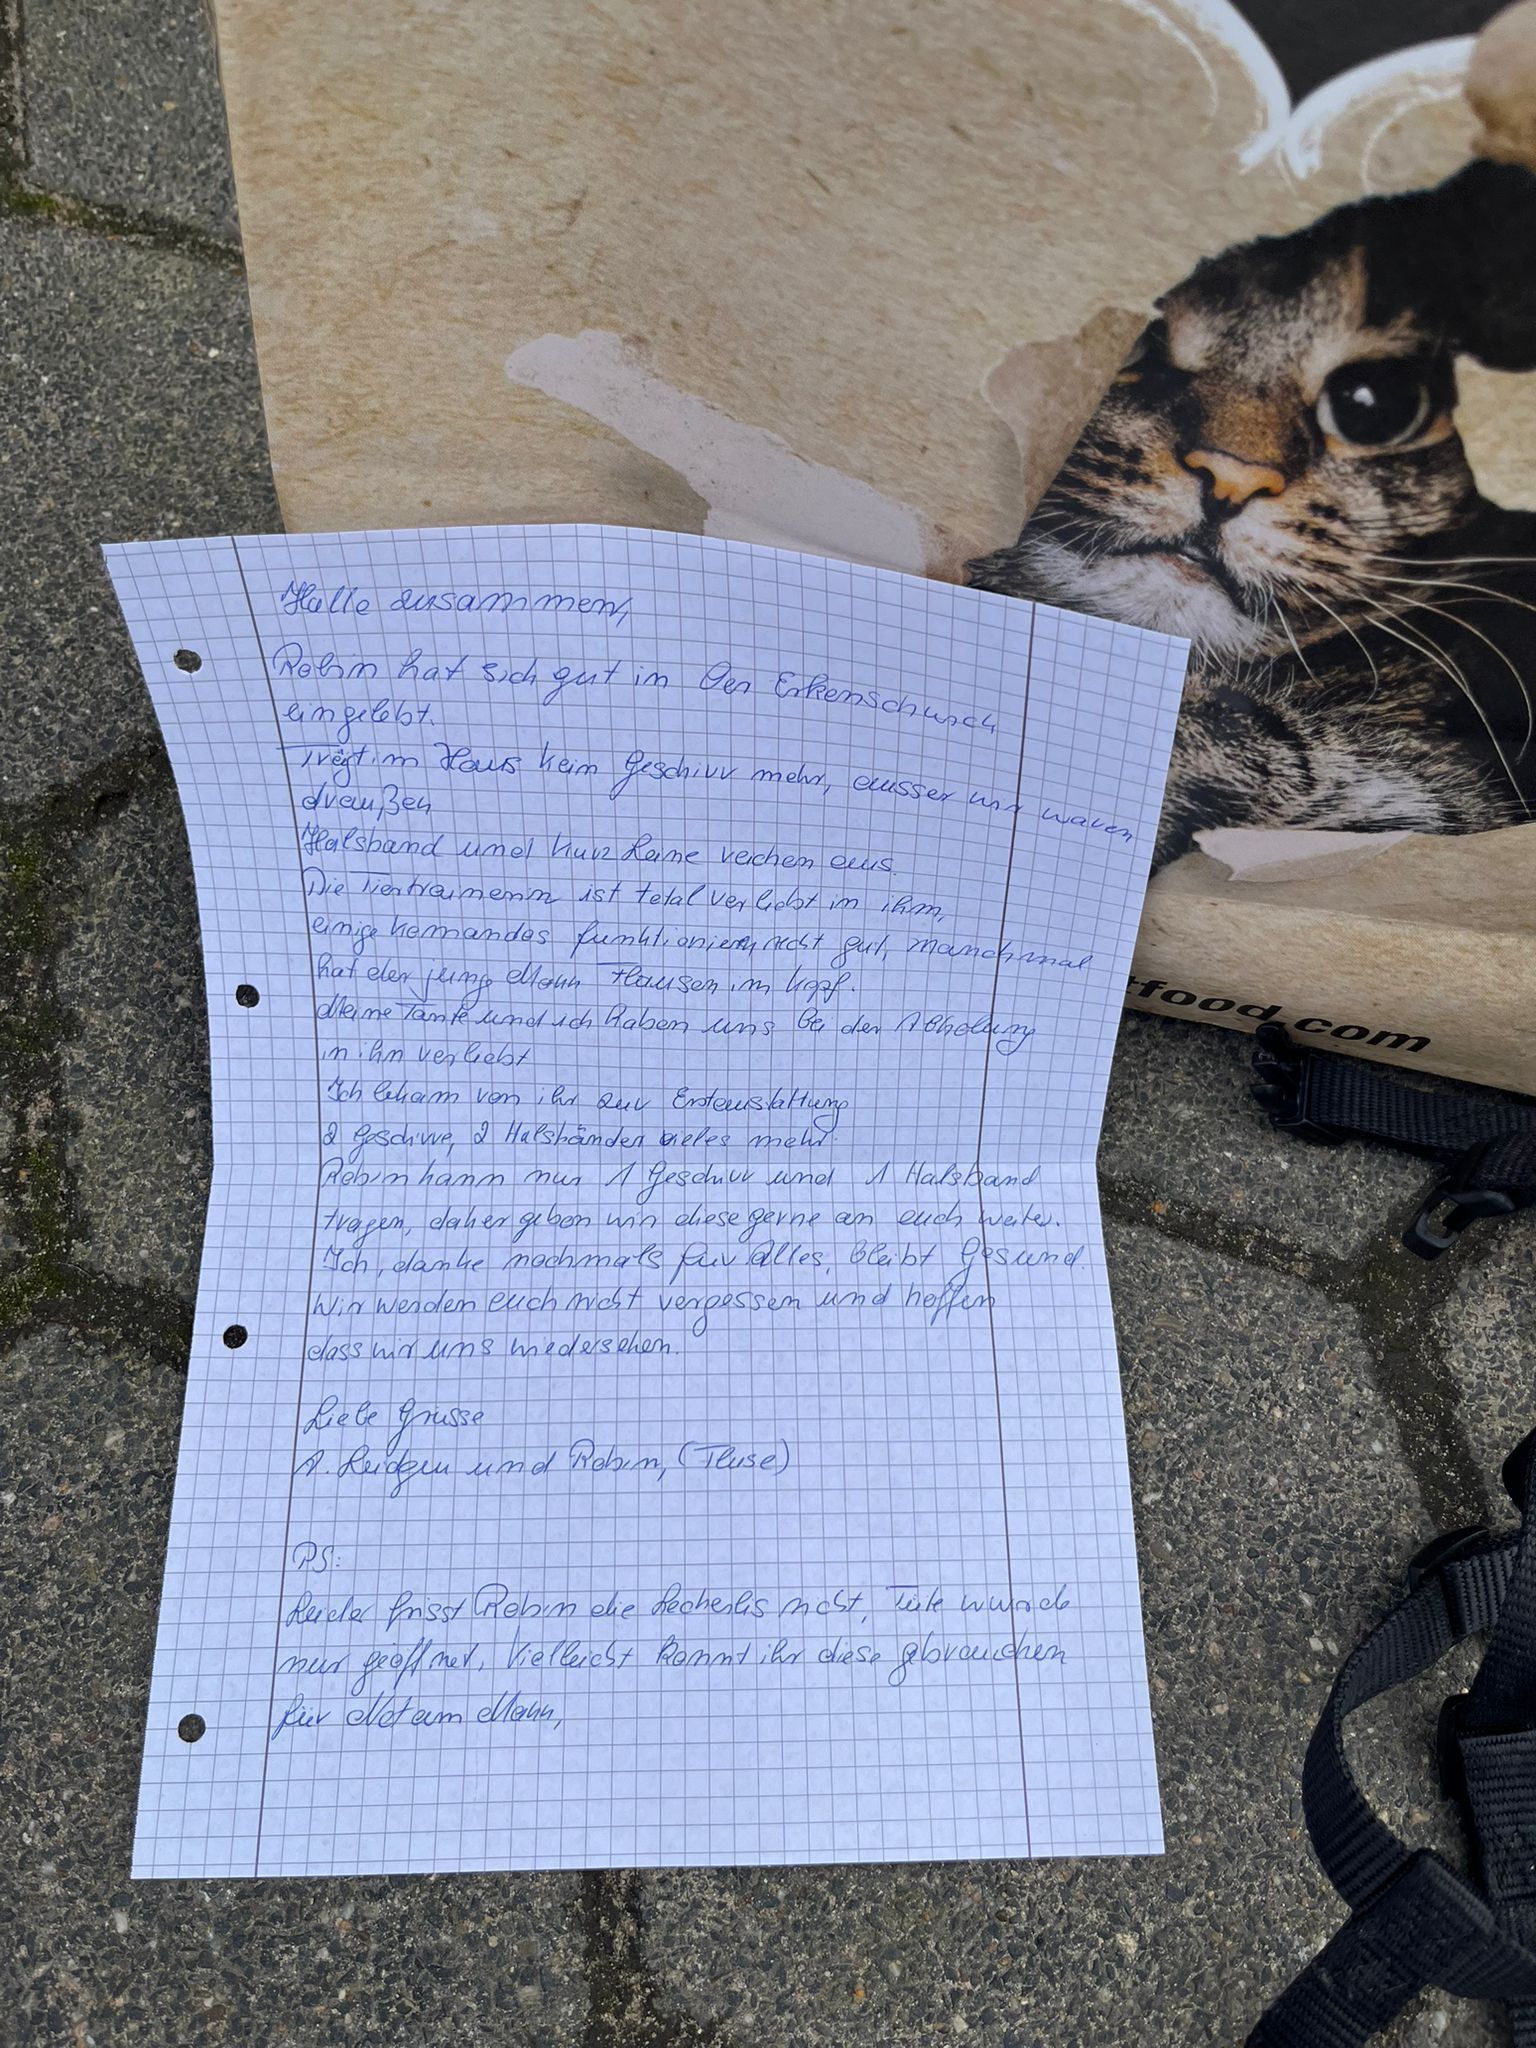 Hallo zusammen,
Robin hat sich gut in Oer Erkenschwick
eingelebt.
Trägt im Haus kein Geschirr mehr, ausser wir waren
draußen
Halsband und kurz Leine reichen aus.
Die Tiertrainerin ist total verliebt in ihm,
einige Komandos funktionieren recht gut, manchmal
hat der junge Mann Flausen im Kopf.
Meine Tante und ich haben uns bei der Abholung
in ihn verliebt
Ich bekam von ihr zur Erstausstattung
2 Geschirre, 2 Halsbänder vieles mehr.
Robin kann nur 1 Geschirr und 1 Halsband
tragen, daher geben wir diese gerne an euch weiter.
Ich, danke nochmals für Alles, bleibt Gesund.
Wir werden euch nicht vergessen und hoffen
dass wir uns wiedersehen.
Liebe Grüsse
und Robin,
PS:
Leider frisst Robin die Leckerlis nicht, Tüte wurde
nur geöffnet, Vielleicht könnt ihr diese gebrauchen
für Not am Mann,
food.com